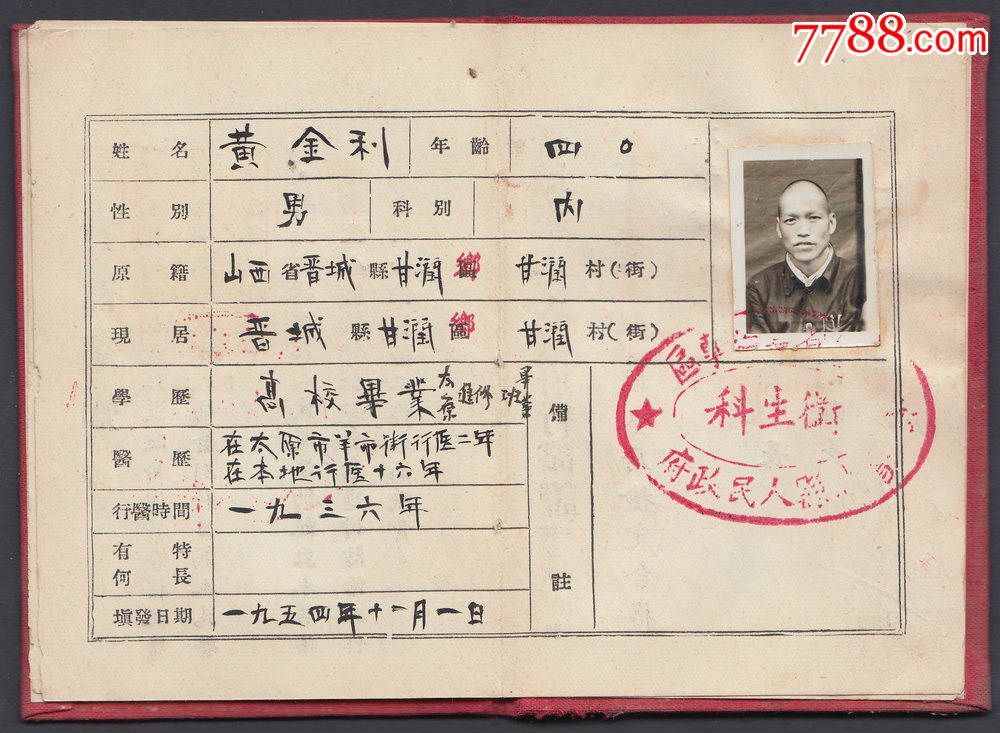 7788.com
姓名 黃金利 年齡 四〇
性別 男 科別 內
原籍 山西省晋城縣甘潤鄉 甘潤村(街)
現居 晋城縣甘潤鄉 甘潤村(街)
學歷 高校畢業太原進修班畢業
醫歷 在太原市羊市街行医二年
在本地行医十六年
行醫時間 一九三六年
有何特長
填發日期 一九五四年十一月一日
備註
專區
衛生科
縣人民政府